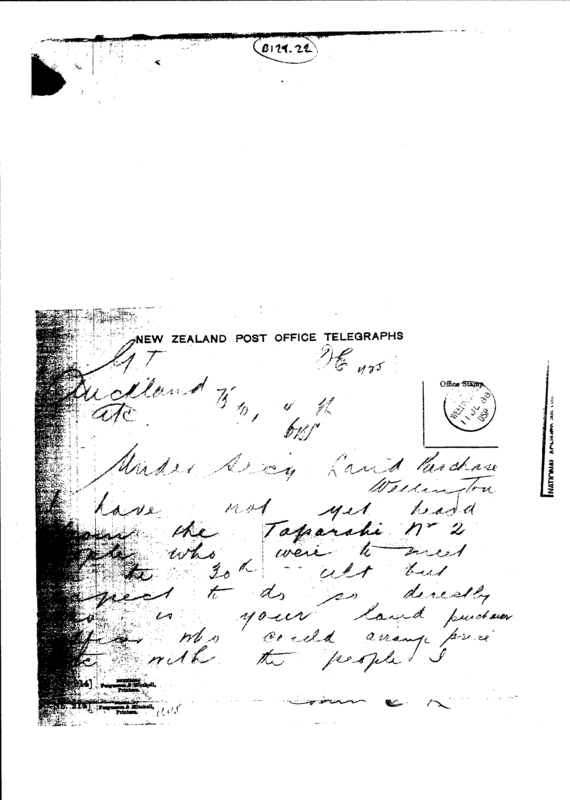 B129.22
NEW ZEALAND POST OFFICE TELEGRAPHS
GT
Auckland
Office Stamp
WELLIN
11 JL 88
Under Secy Land Purchase
Wellington
I have not yet heard
from the Taparahi No 2
people who were to meet
the 30th ult but
expect to do so directly
who is your land purchase
officer who could arrange price
etc with the people I
214]
Ferguson & Mitchell,
Printers.
Ferguson & Mitchell,
Printers.